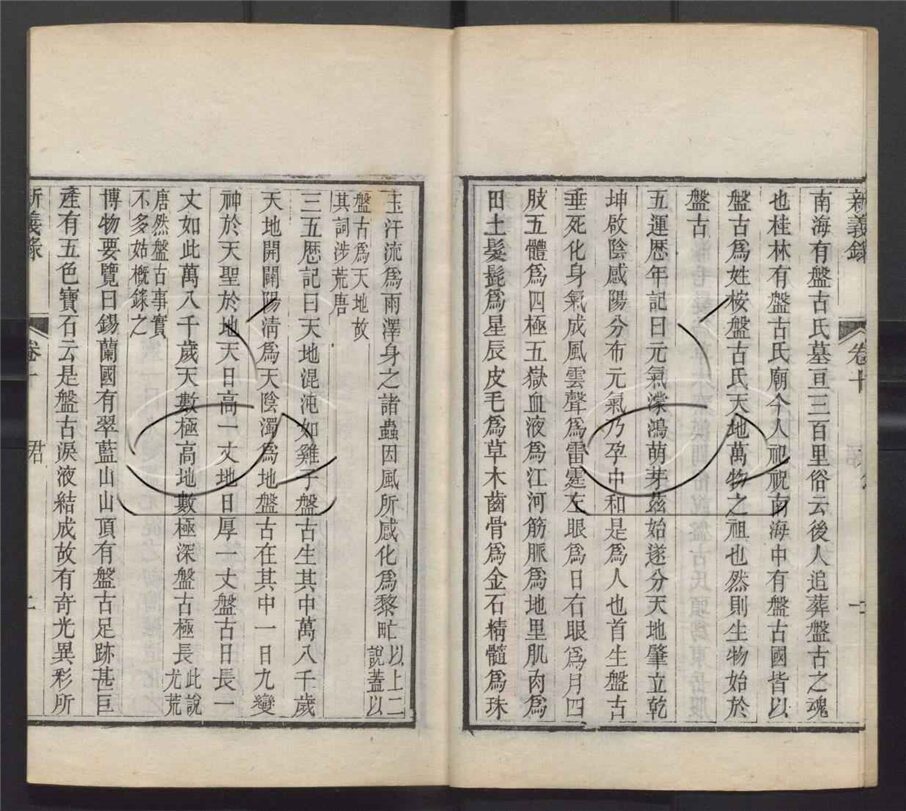 新義錄 卷十
南海有盤古氏墓亘三百里俗云後人追葬盤古之魂
也桂林有盤古氏廟今人祀祝南海中有盤古國皆以
盤古爲姓桉盤古氏天地萬物之祖也然則生物始於
盤古
五運歷年記曰元氣濛鴻萌芽茲始遂分天地肇立乾
坤啟陰感陽分布元氣乃孕中和是爲人也首生盤古
垂死化身氣成風雲聲爲雷霆左眼爲日右眼爲月四
肢五體爲四極五嶽血液爲江河筋脈爲地里肌肉爲
田土髮髭爲星辰皮毛爲草木齒骨爲金石精髓爲珠
玉汗流爲雨澤身之諸蟲因風所感化爲黎甿以上二
說蓋以
盤古爲天地故
其詞涉荒唐
三五歷記曰天地混沌如雞子盤古生其中萬八千歲
天地開闢陽清爲天陰濁爲地盤古在其中一日九變
神於天聖於地天日高一丈地日厚一丈盤古日長一
丈如此萬八千歲天數極高地數極深盤古極長此說
尤荒
唐然盤古事實
不多姑概錄之
博物要覽曰錫蘭國有翠藍山山頂有盤古足跡甚巨
產有五色寶石云是盤古淚液結成故有奇光異彩所
新義錄 卷十 君 二